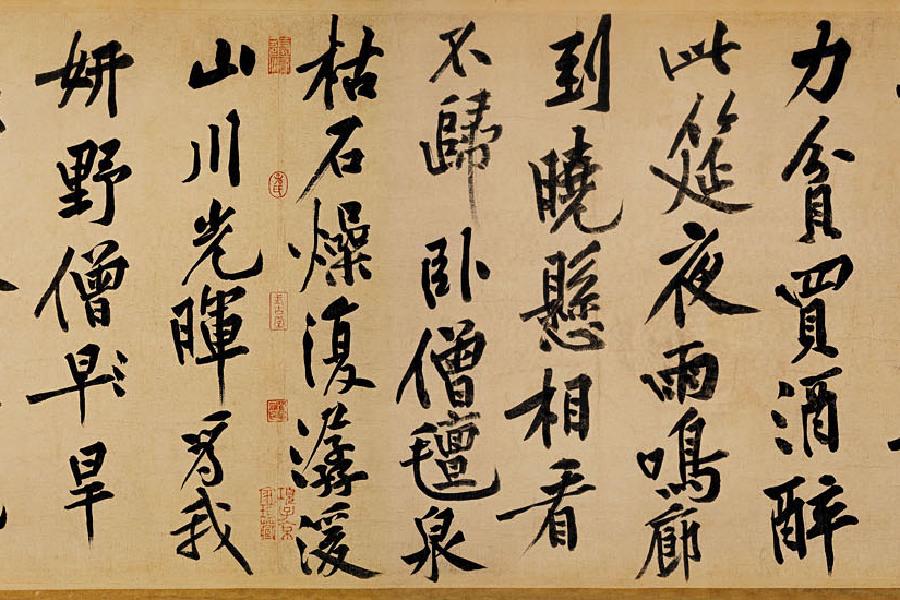 力貧買酒醉
此筵夜雨鳴廊
到曉懸相看
不歸臥僧氈泉
枯石燥復潺湲
山川光暉爲我
妍野僧早旱